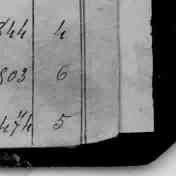 844 4
803 6
474 5